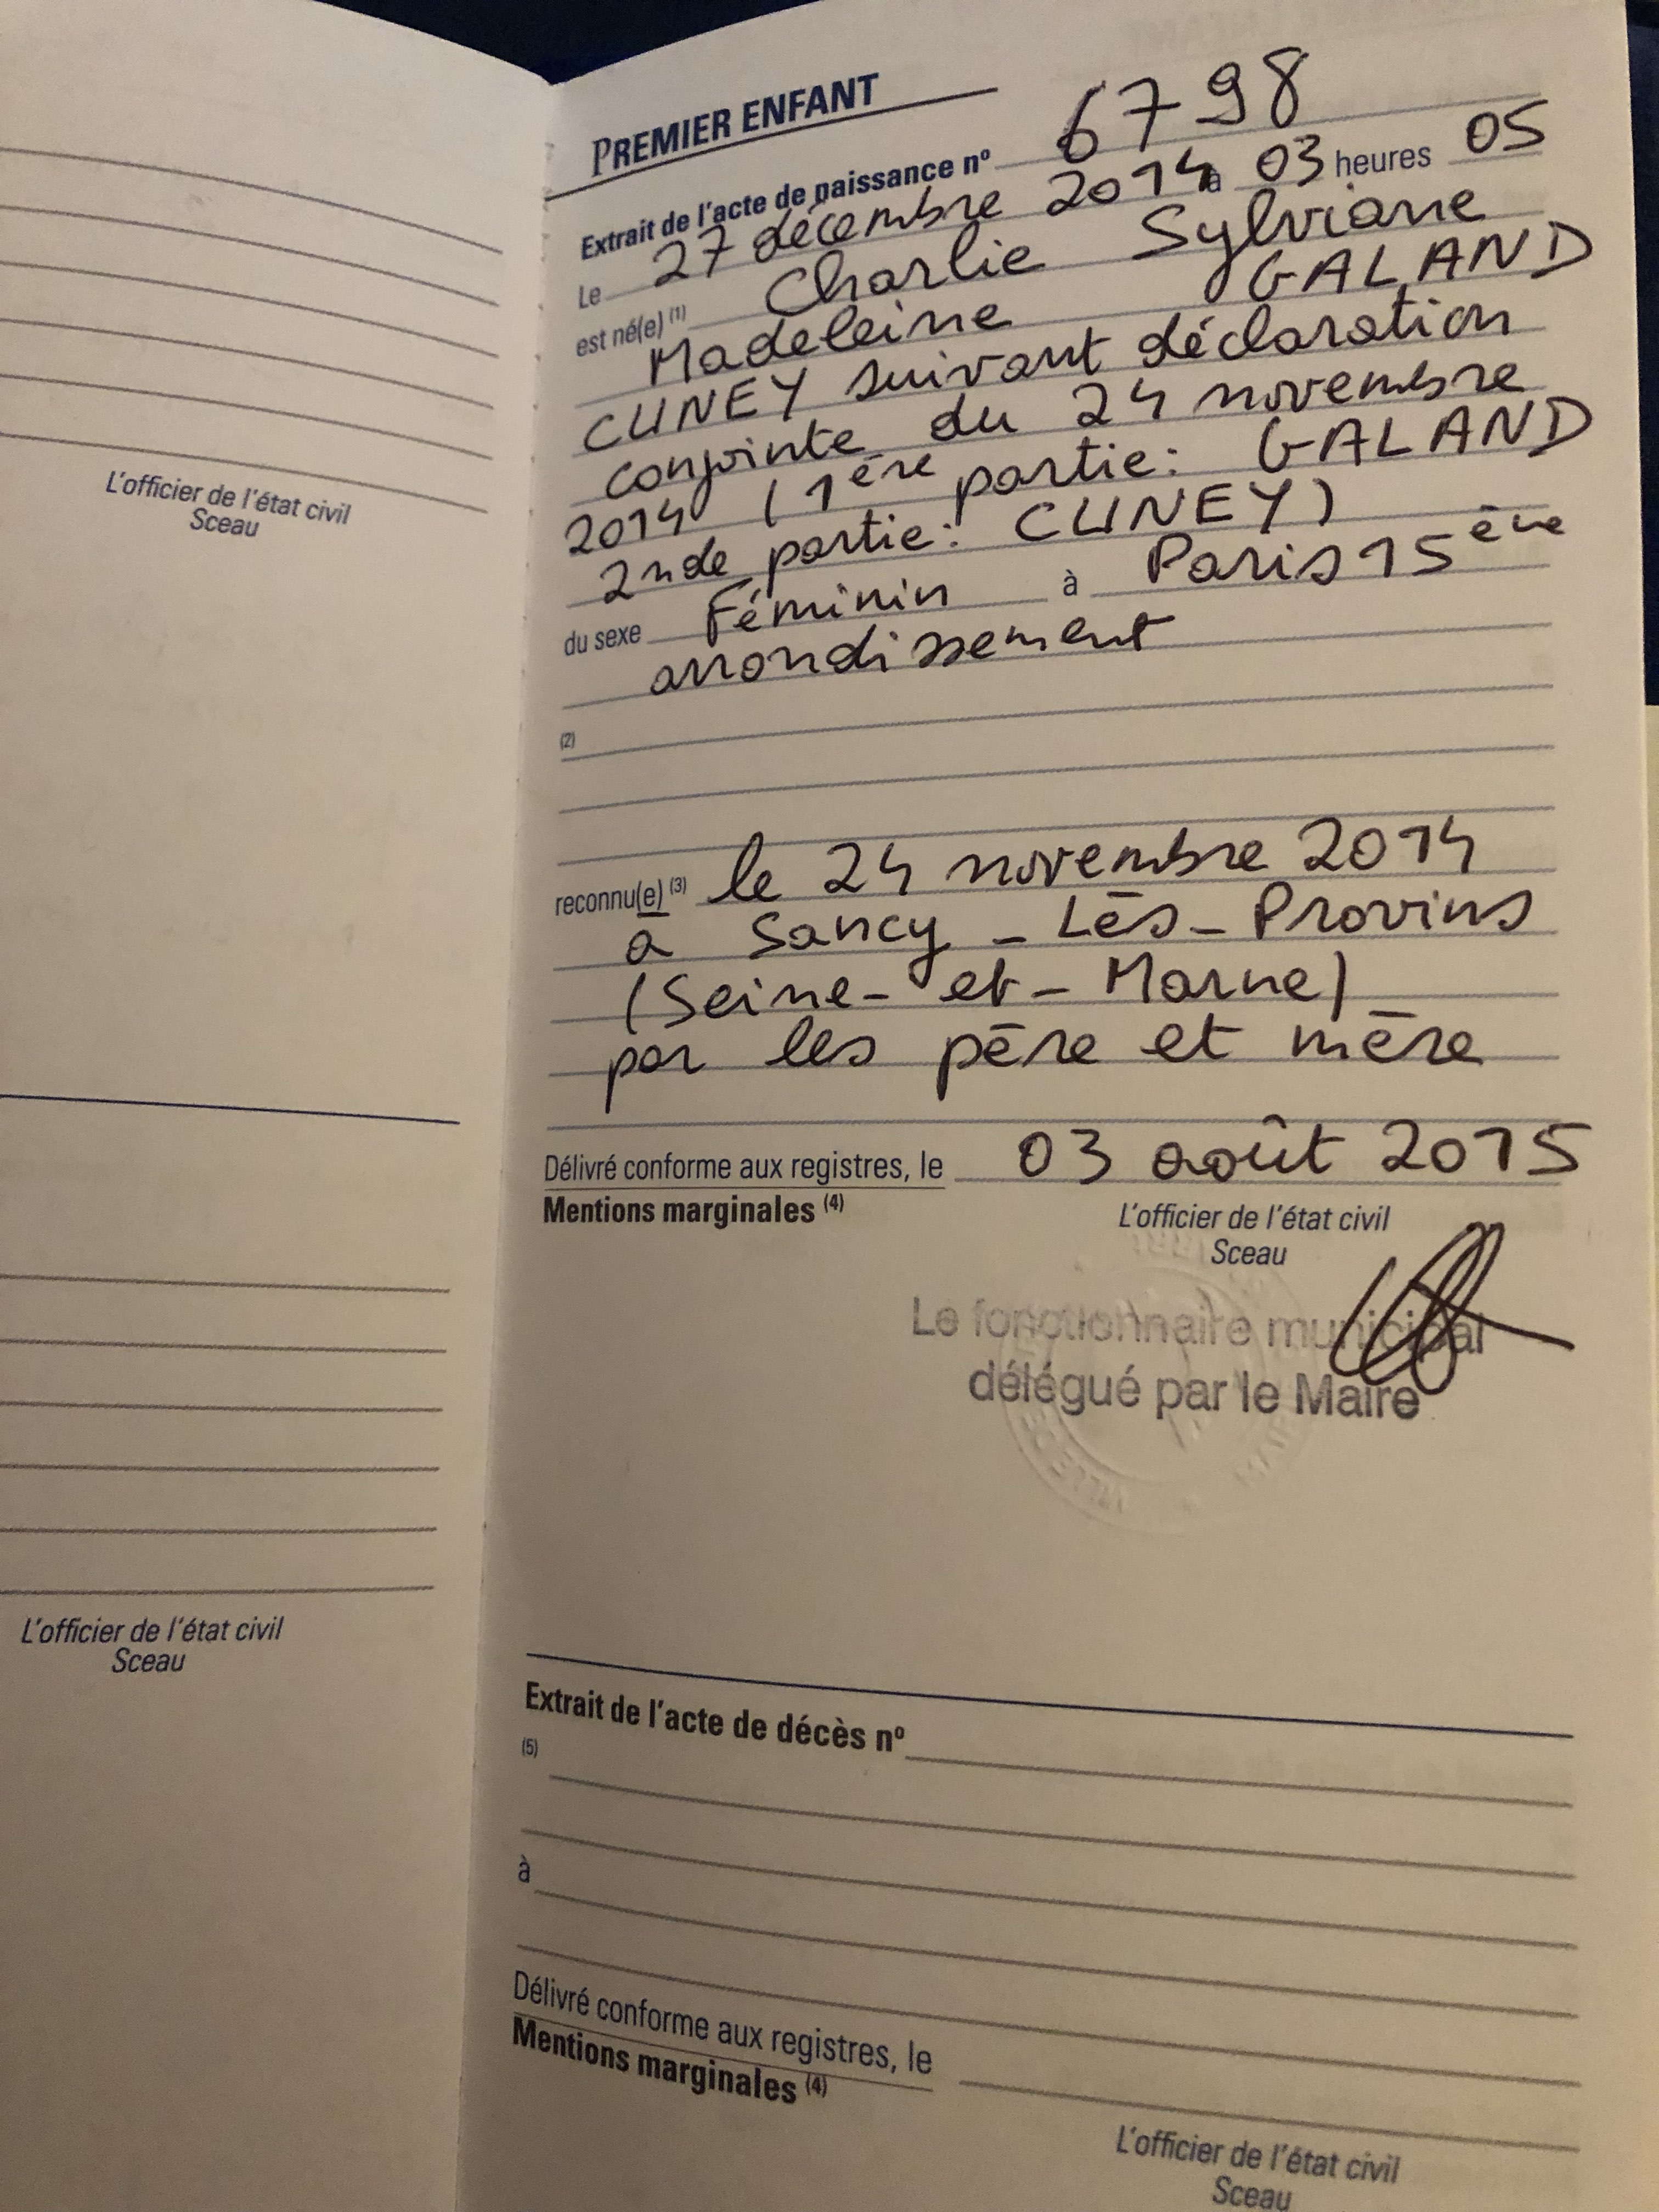 L'officier de l'état civil
Sceau
L'officier de l'état civil
Sceau
PREMIER ENFANT
Extrait de l'acte de naissance nº 6798
Le 27 décembre 2014 à 03 heures 05
est né(e) (1) Charlie Sylviane
Madeleine GALAND
CUNEY suivant déclaration
conjointe du 24 novembre
2014 (1ère partie: GALAND
2nde partie: CUNEY)
du sexe Féminin à Paris 15ème
arrondissement
(2)
reconnu(e) (3) le 24 novembre 2014
à Sancy-Lès-Provins
(Seine-et-Marne)
par les père et mère
Délivré conforme aux registres, le 03 août 2015
Mentions marginales (4)
L'officier de l'état civil
Sceau
Le fonctionnaire municipal
délégué par le Maire
Extrait de l'acte de décès nº
(5)
à
Délivré conforme aux registres, le
Mentions marginales (4)
L'officier de l'état civil
Sceau